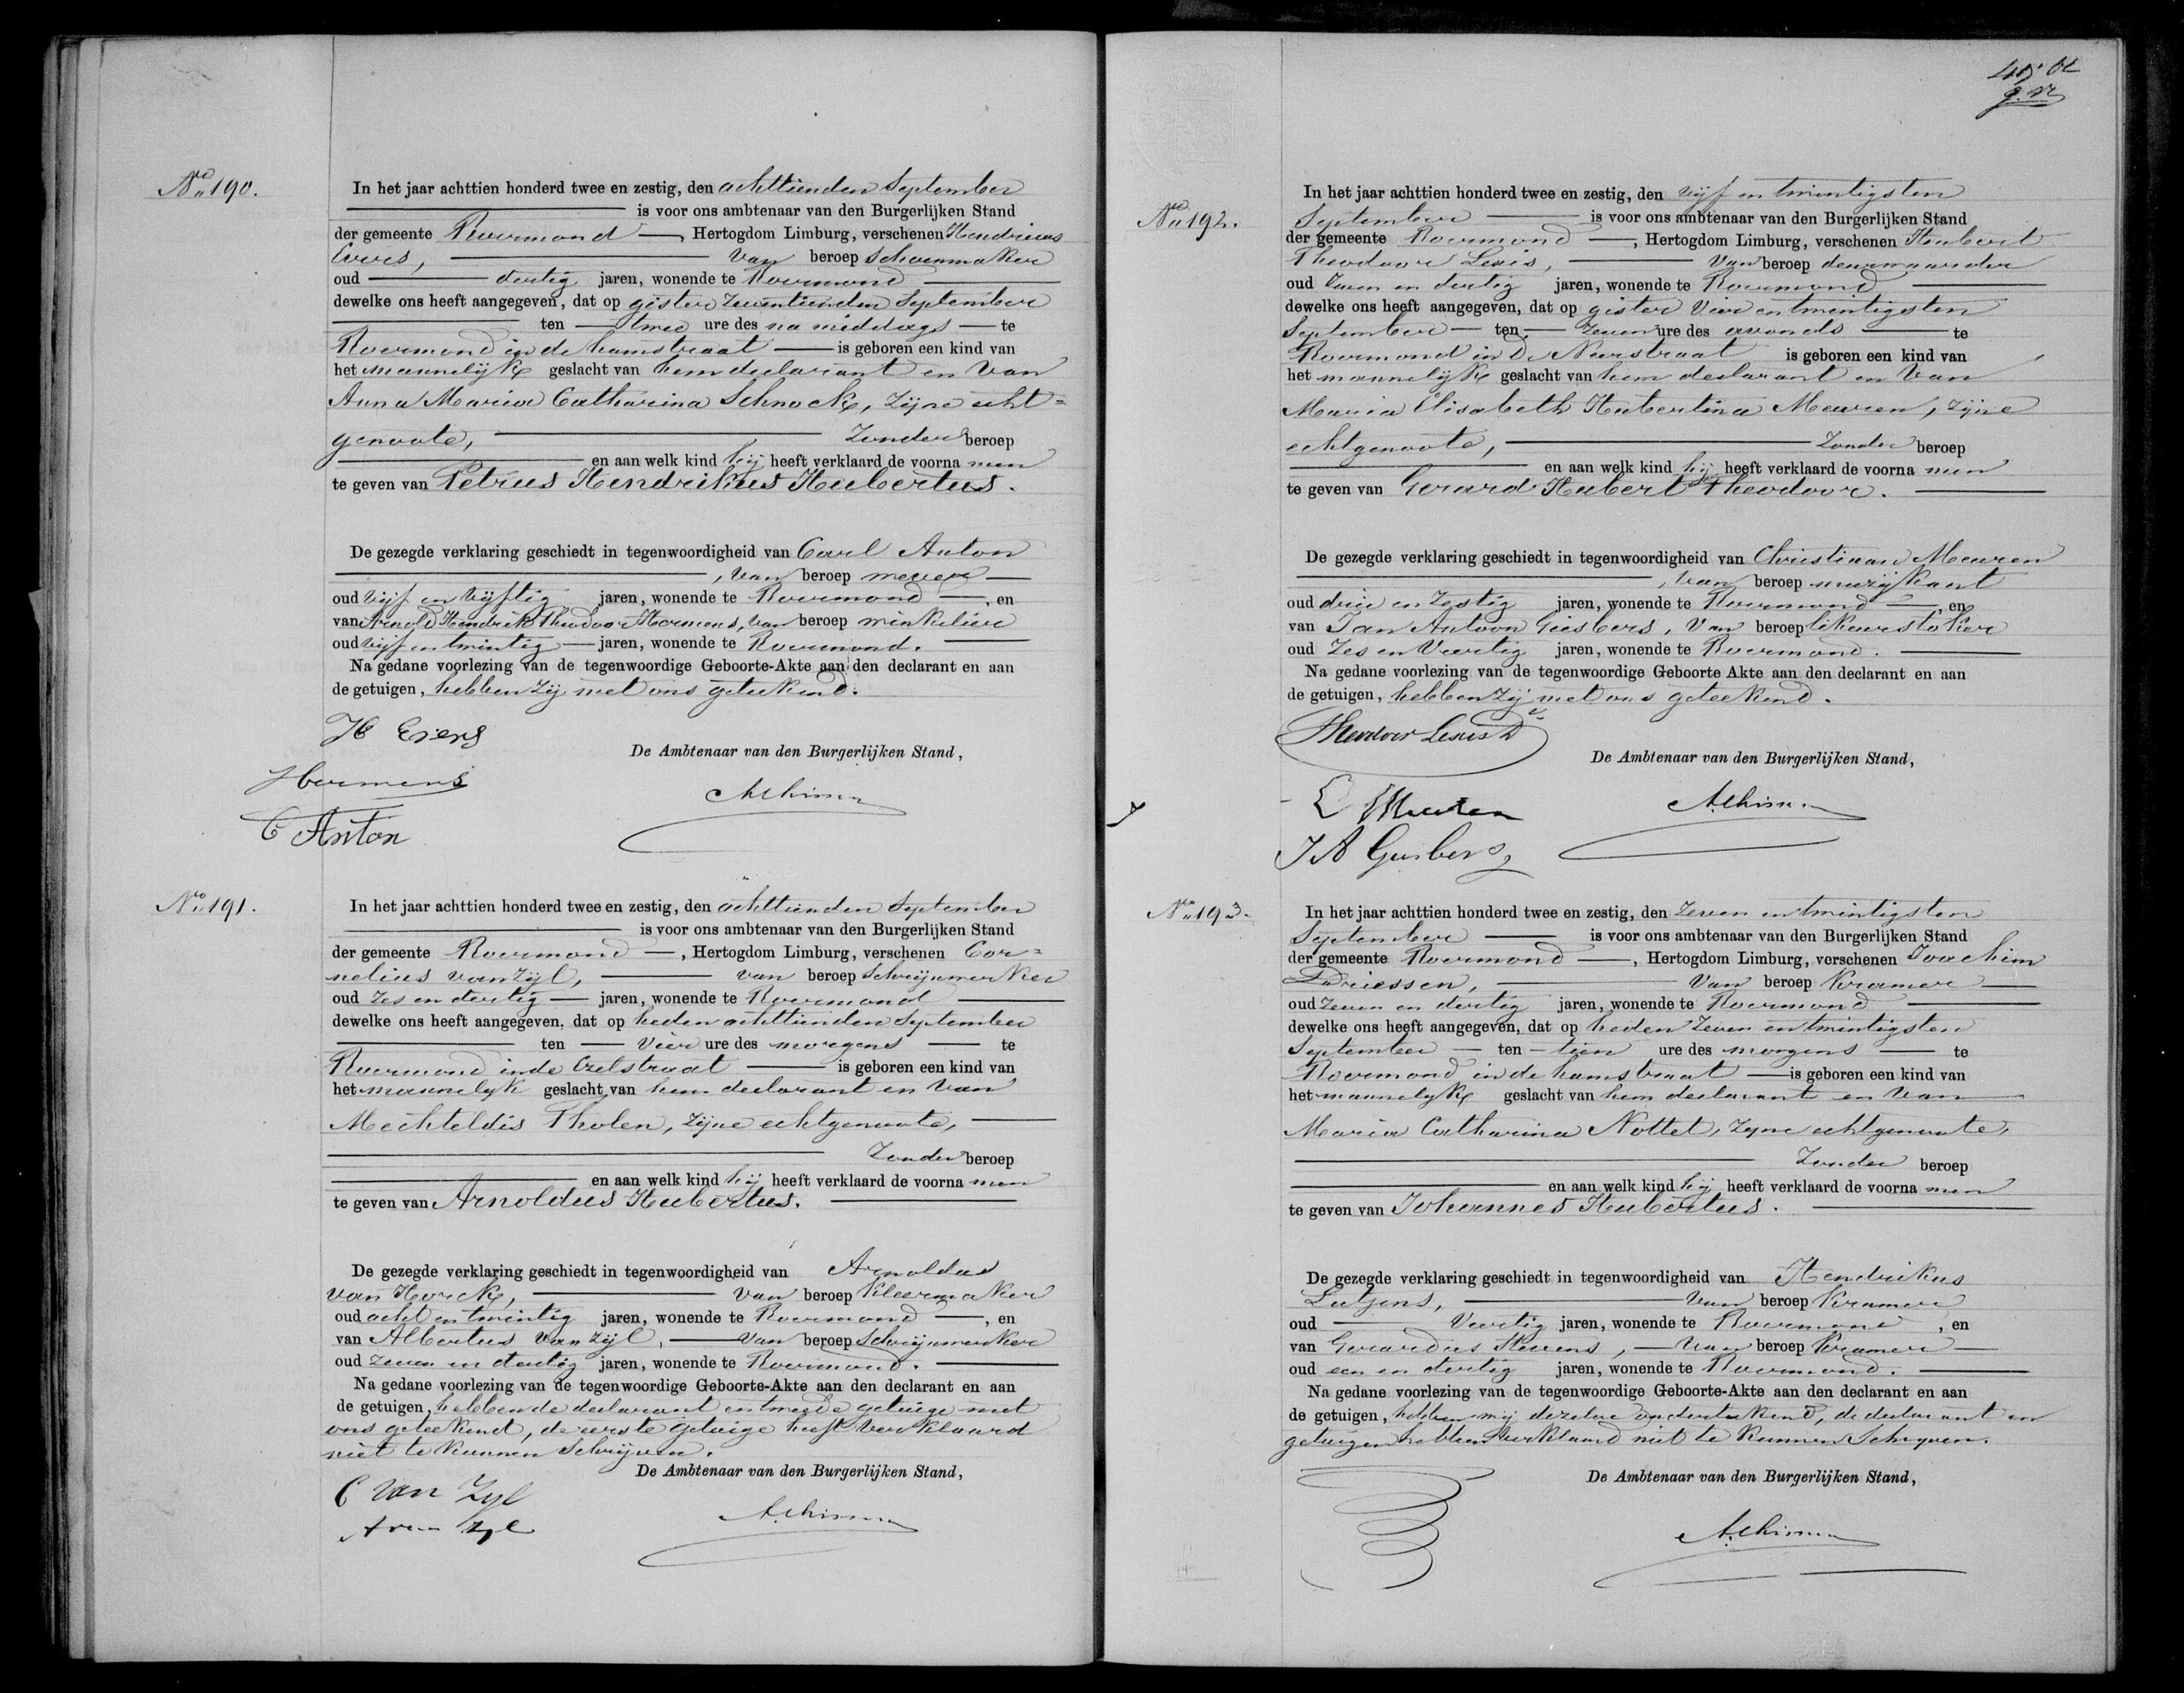 No 190.
In het jaar achttien honderd twee en zestig, den achttienden September
is voor ons ambtenaar van den Burgerlijken Stand
der gemeente Roermond, Hertogdom Limburg, verschenen Hendricus
Evers, van beroep schoenmaker
oud dertig jaren, wonende te Roermond
dewelke ons heeft aangegeven, dat op gister zeventienden September
ten twee ure des na middags te
Roermond in de hamstraat is geboren een kind van
het mannelijk geslacht van hem declarant en van
Anna Maria Catharina Schnock, zijne echt=
genoote, zonder beroep
en aan welk kind hij heeft verklaard de voorna men
te geven van Petrus Hendrikus Hubertus.
De gezegde verklaring geschiedt in tegenwoordigheid van Carl Anton
, van beroep wever
oud vijf en vijftig jaren, wonende te Roermond, en
van Arnold Hendrik Theodoor Hermens, van beroep winkelier
oud vijf en twintig jaren, wonende te Roermond.
Na gedane voorlezing van de tegenwoordige Geboorte-Akte aan den declarant en aan
de getuigen, hebben zij met ons geteekend.
H Evers
De Ambtenaar van den Burgerlijken Stand,
Hermens
C Anton
No 191.
In het jaar achttien honderd twee en zestig, den achttienden September
is voor ons ambtenaar van den Burgerlijken Stand
der gemeente Roermond, Hertogdom Limburg, verschenen Cor=
nelius van Zijl, van beroep schrijnwerker
oud zes en dertig jaren, wonende te Roermond
dewelke ons heeft aangegeven, dat op heden achttienden September
ten vier ure des morgens te
Roermond in de Ezelstraat is geboren een kind van
het mannelyk geslacht van hem declarant en van
Mechteldis Tholen, zijne echtgenoote,
zonder beroep
en aan welk kind hij heeft verklaard de voorna men
te geven van Arnoldus Hubertus.
De gezegde verklaring geschiedt in tegenwoordigheid van Arnoldus
van Horck, van beroep kleermaker
oud acht en twintig jaren, wonende te Roermond, en
van Albertus van Zijl, van beroep schrijnwerker
oud zeven en dertig jaren, wonende te Roermond.
Na gedane voorlezing van de tegenwoordige Geboorte-Akte aan den declarant en aan
de getuigen, hebben de declarant en tweede getuige met
ons geteekend, de eerste getuige heeft verklaard
niet te kunnen schrijven.
De Ambtenaar van den Burgerlijken Stand,
C van Zyl
A van Zyl
No 192.
In het jaar achttien honderd twee en zestig, den vijf en twintigsten
September is voor ons ambtenaar van den Burgerlijken Stand
der gemeente Roermond, Hertogdom Limburg, verschenen Hubert
Theodoor Lexis, van beroep deurwaarder
oud zeven en dertig jaren, wonende te Roermond
dewelke ons heeft aangegeven, dat op gister vier en twintigsten
September ten zeven ure des avonds te
Roermond in de Neerstraat is geboren een kind van
het mannelijk geslacht van hem declarant en van
Maria Elisabeth Hubertina Meuren, zijne
echtgenoote, zonder beroep
en aan welk kind hij heeft verklaard de voorna men
te geven van Gerard Hubert Theodoor.
De gezegde verklaring geschiedt in tegenwoordigheid van Christiaan Meuren
, van beroep muzijkant
oud drie en zestig jaren, wonende te Roermond, en
van Jan Antoon Giesbers, van beroep likeurstoker
oud zes en veertig jaren, wonende te Roermond.
Na gedane voorlezing van de tegenwoordige Geboorte Akte aan den declarant en aan
de getuigen, hebben zij met ons geteekend.
Theodoor Lexis
De Ambtenaar van den Burgerlijken Stand,
C Meuren
J A Giesbers
No 193.
In het jaar achttien honderd twee en zestig, den zeven en twintigsten
September is voor ons ambtenaar van den Burgerlijken Stand
der gemeente Roermond, Hertogdom Limburg, verschenen Joachim
Driessen, van beroep kramer
oud zeven en dertig jaren, wonende te Roermond
dewelke ons heeft aangegeven, dat op heden zeven en twintigsten
September ten tien ure des morgens te
Roermond in de hamstraat is geboren een kind van
het mannelyk geslacht van hem declarant en van
Maria Catharina Nottet, zyne echtgenoote,
zonder beroep
en aan welk kind hij heeft verklaard de voorna men
te geven van Johannes Hubertus.
De gezegde verklaring geschiedt in tegenwoordigheid van Hendrikus
Lutjens, van beroep kramer
oud veertig jaren, wonende te Roermond, en
van Gerardus Stevens, van beroep kramer
oud een en dertig jaren, wonende te Roermond.
Na gedane voorlezing van de tegenwoordige Geboorte-Akte aan den declarant en aan
de getuigen, hebben wij dezelve onderteekend, de declarant en
getuigen hebben verklaard niet te kunnen schryven.
De Ambtenaar van den Burgerlijken Stand,